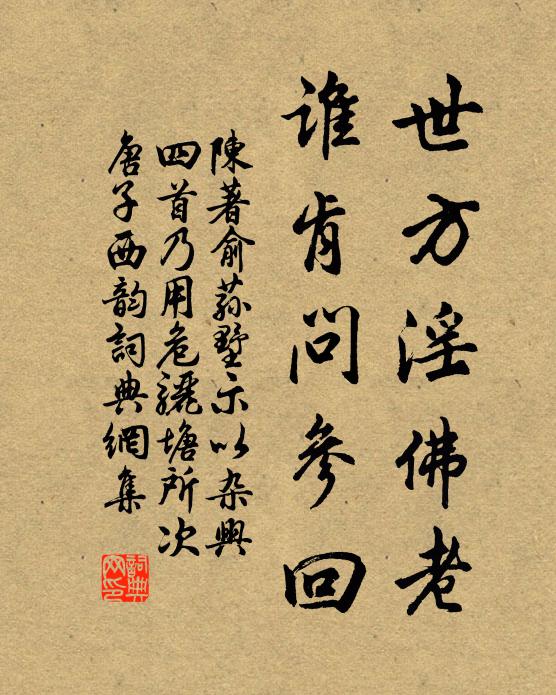 世方淫佛老
谁肯问参回
陳著俞荪墅示以杂興
四首乃用危驪塘所次
唐子西韵詞典網集
詞典网印